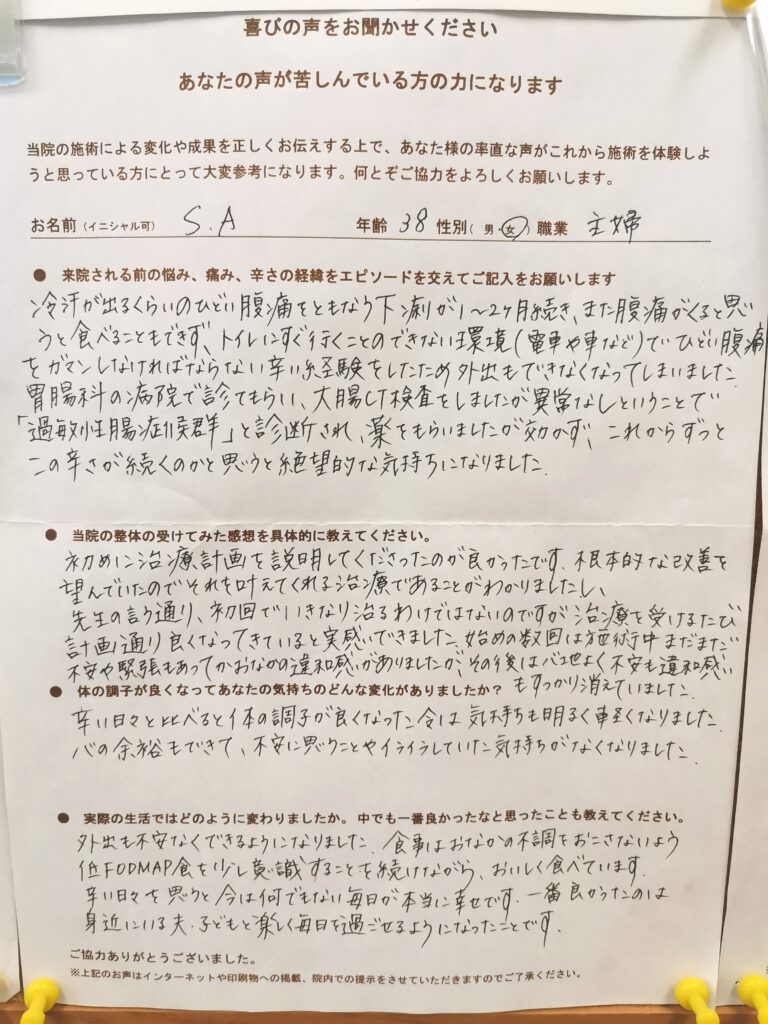 喜びの声をお聞かせください
あなたの声が苦しんでいる方の力になります
当院の施術による変化や成果を正しくお伝えする上で、あなた様の率直な声がこれから施術を体験しよ
うと思っている方にとって大変参考になります。何とぞご協力をよろしくお願いします。
お名前（イニシャル可） S.A 年齢 38 性別（ 男・女） 職業 主婦
● 来院される前の悩み、痛み、辛さの経緯をエピソードを交えてご記入をお願いします
冷汗が出るくらいのひどい腹痛をともなう下痢が1〜2ヶ月続き、また腹痛がくると思
うと食べることもできず、トイレにすぐ行くことのできない環境(電車や車など)でひどい腹痛
をガマンしなければならない辛い経験をしたため外出もできなくなってしまいました.
胃腸科の病院で診てもらい、大腸CT検査をしましたが異常なしということで
「過敏性腸症候群」と診断され、薬をもらいましたが効かず、これからずっと
この辛さが続くのかと思うと絶望的な気持ちになりました.
● 当院の整体の受けてみた感想を具体的に教えてください。
初めに治療計画を説明してくださったのが良かったです. 根本的な改善を
望んでいたのでそれを叶えてくれる治療であることがわかりましたし、
先生の言う通り、初回でいきなり治るわけではないのですが治療を受けるたび
計画通り良くなってきていると実感できました. 始めの数回は施術中まだまだ
不安や緊張もあってかおなかの違和感がありましたが、その後は心地よく不安も違和感
もすっかり消えていました.
● 体の調子が良くなってあなたの気持ちのどんな変化がありましたか？
辛い日々と比べると体の調子が良くなった今は気持ちも明るく軽くなりました.
心の余裕もできて、不安に思うことやイライラしていた気持ちがなくなりました.
● 実際の生活ではどのように変わりましたか。中でも一番良かったなと思ったことも教えてください。
外出も不安なくできるようになりました. 食事はおなかの不調をおこさないよう
低FODMAP食を少し意識することを続けながら、おいしく食べています.
辛い日々を思うと今は何でもない毎日が本当に幸せです. 一番良かったのは
身近にいる夫・子どもと楽しく毎日を過ごせるようになったことです.
ご協力ありがとうございました。
※上記のお声はインターネットや印刷物への掲載、院内での提示をさせていただきますのでご了承ください。